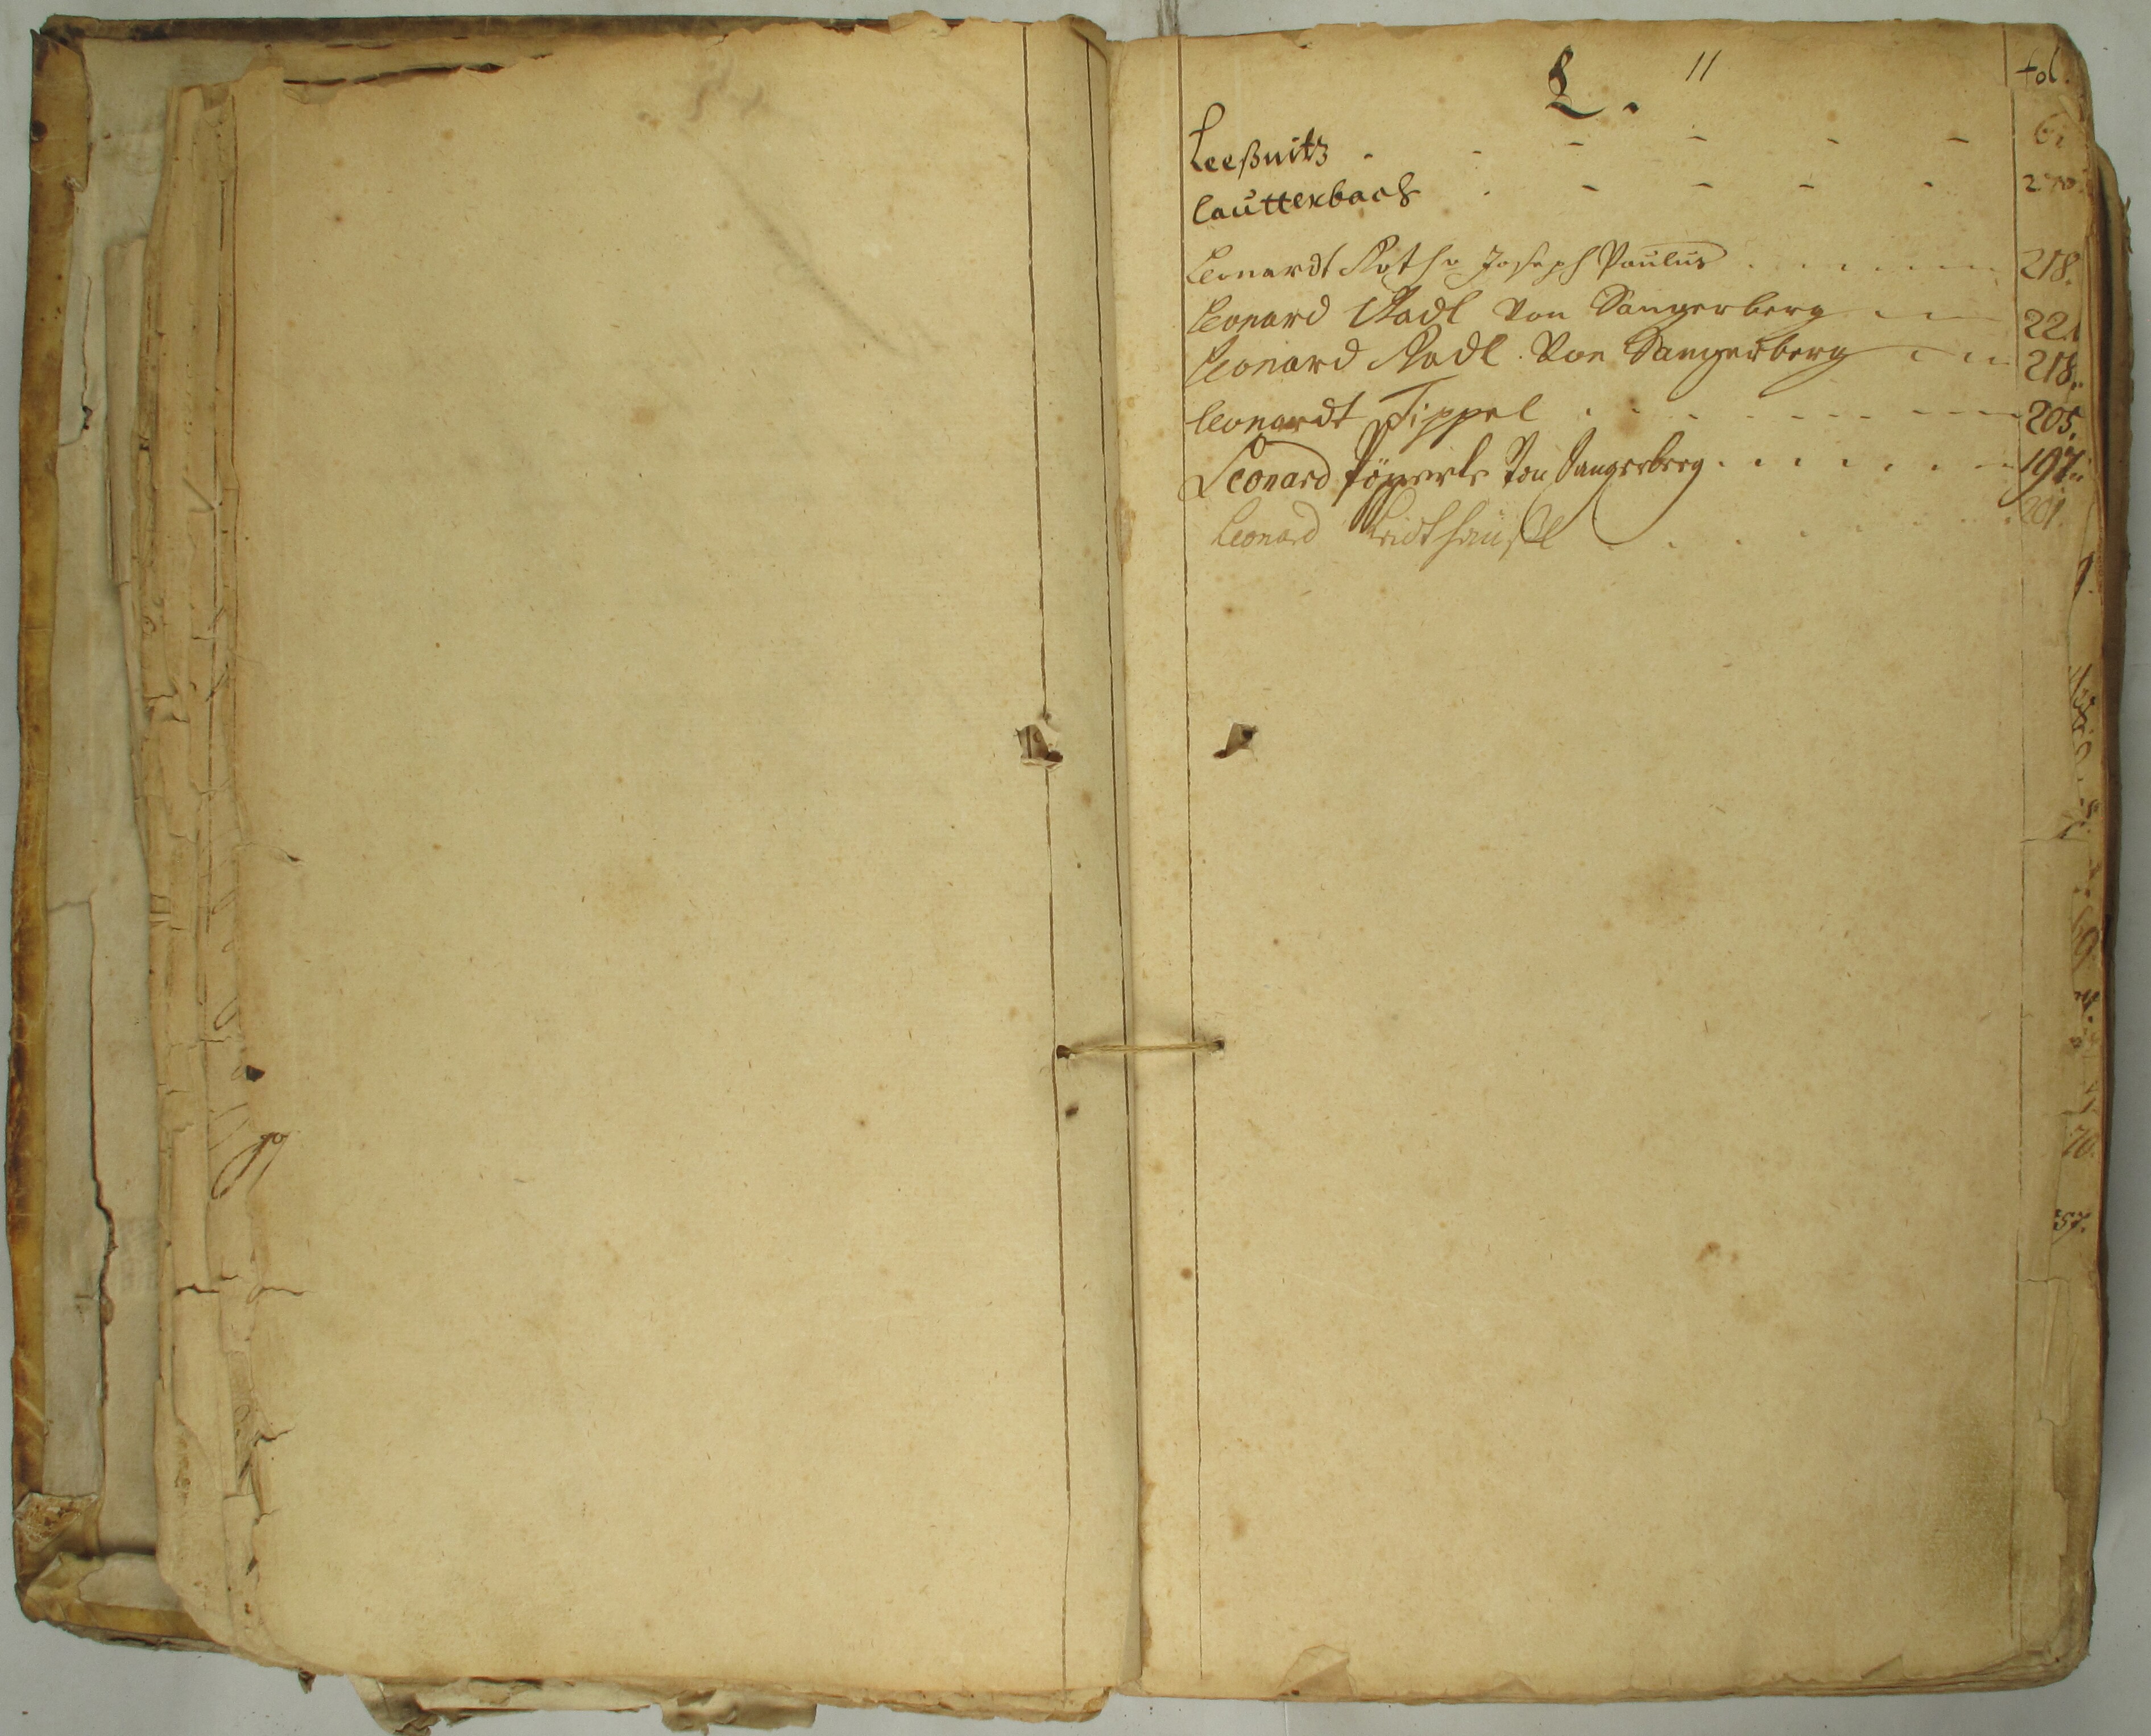 L. 11 fol.
Leeßnitz - - - - - - 6
Lautterbach - - - - - 270.
Leonardt Roth v Joseph Paulus . . . . . . 218.
Leonard Stadl Von Sangerberg - - - 221
Leonard Stadl Von Sangerberg - - - 218.
Leonardt Tippel . . . . . . . . . 205.
Leonard Pöperle Von Sangerberg . . . . . . 197.
Leonard . . . . . . 201.
70.
57.